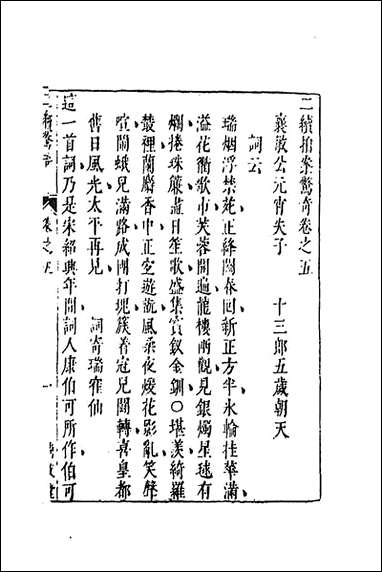 二續拍案驚奇卷之五
襄敏公元宵失子　十三郎五歲朝天
詞云
瑞烟浮禁苑正絳闕春回新正方半氷輪桂華滿
溢花衢歌市芙蓉開遍龍樓兩觀見銀燭星毬有
爛捲珠簾盡日笙歌盛集寳釵金釧○堪羡綺羅
叢裡蘭麝香中正宜遊翫風柔夜煖花影亂笑聲
喧鬧蛾兒滿路成團打塊簇着冠兒鬭轉喜皇都
舊日風光太平再見　詞寄瑞鶴仙
這一首詞乃是宋紹興年間詞人康伯可所作伯可
二續驚奇　卷之五　一